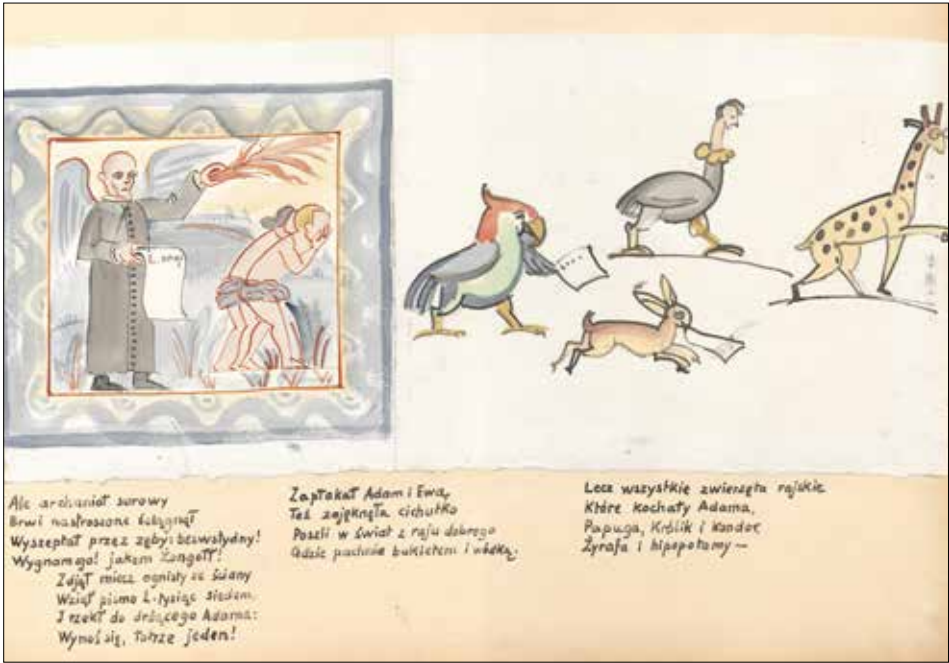 L. ... 
Ale archanioł surowy
Brwi nastroszone ściągnął
Wyszeptał przez zęby: bezwstydny!
Wygnam go! jakem Żongołł!
Zdjął miecz ognisty ze ściany
Wziął pismo L-tysiąc siedem,
I rzekł do drżącego Adama:
Wynoś się, łotrze jeden!
Zapłakał Adam i Ewa,
Też zajęknęła cichutko
Poszli w świat z raju dobrego
Gdzie pachnie bukietem i wódką.
Lecz wszystkie zwierzęta rajskie
Które kochały Adama,
Papuga, Królik i Kondor,
Żyrafa i hipopotamy —